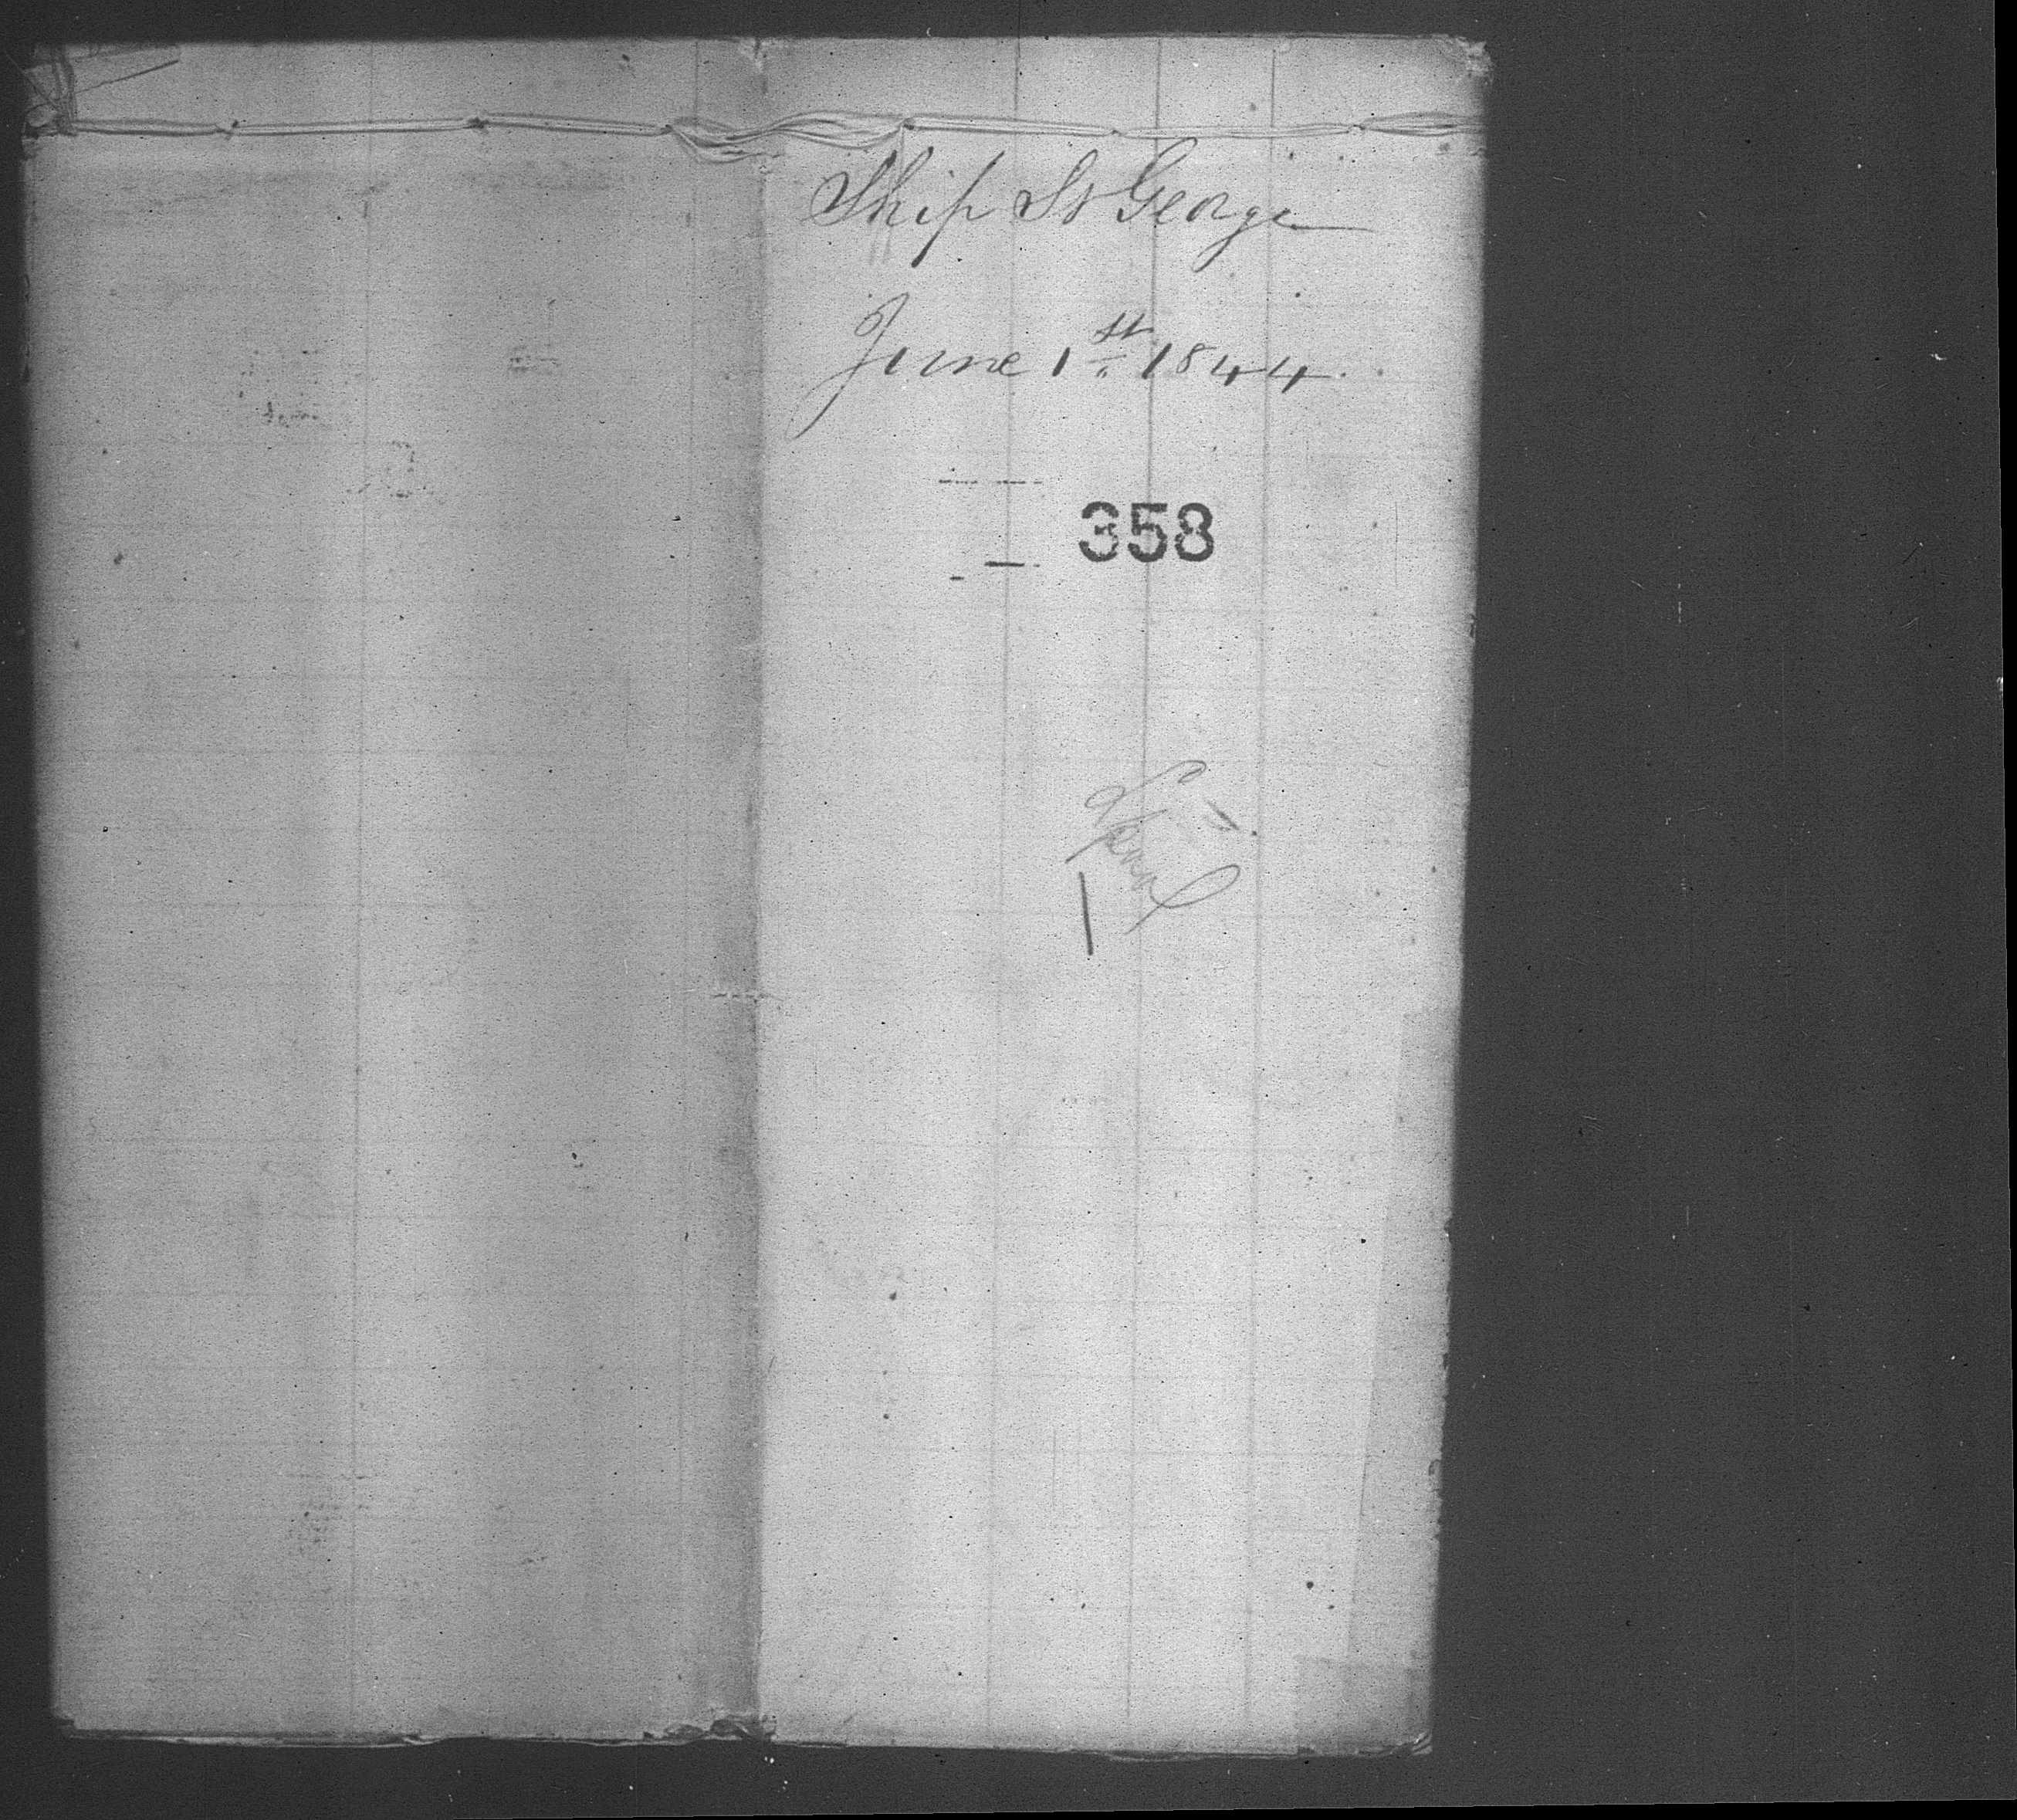 Ship St George
June 1st 1844.
358